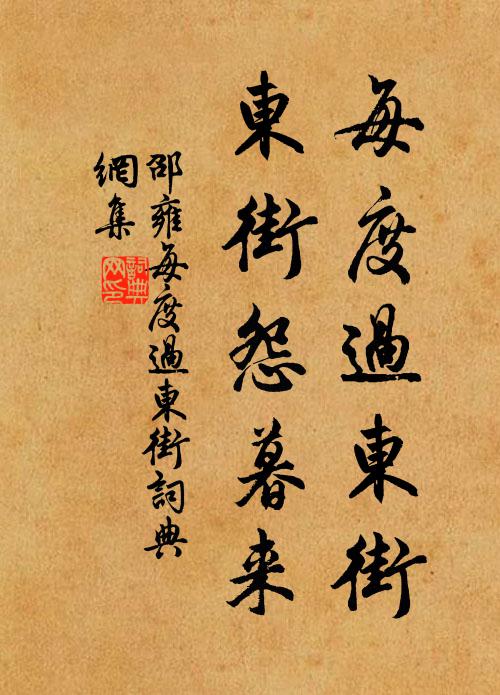 每度過東街
東街怨暮来
邵雍每度過東街詞典
網集
詞典
网印